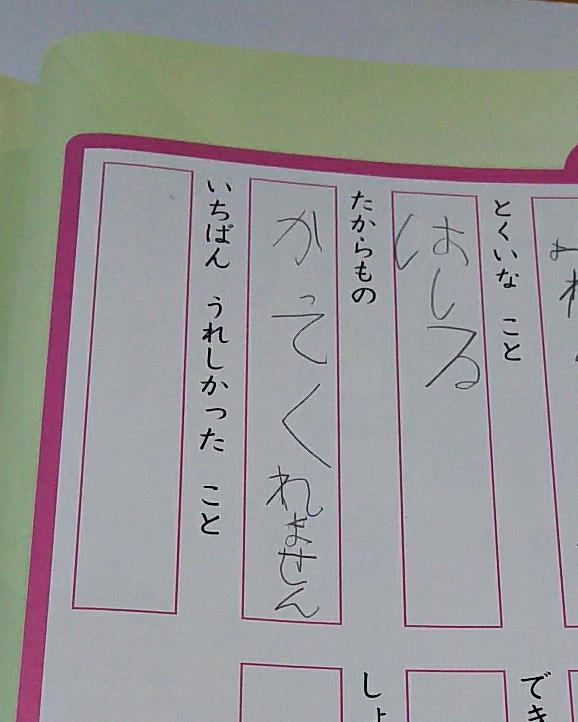 とくいな こと
はしる
たからもの
かってくれません
いちばん うれしかった こと
でき
しょ